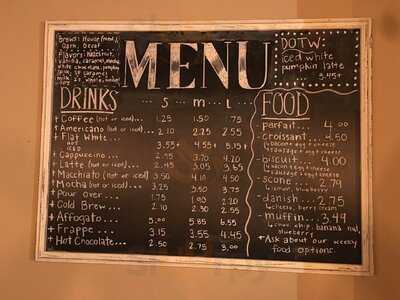 Brews: House (med),
Dark, Decaf
Flavors: Hazelnut,
vanilla, caramel, mocha,
white chocolate, pumpkin
spice, sf caramel
milk: af, whole,
MENU
DOTW:
iced white
pumpkin latte
... 3.45+
DRINKS ... S ... M ... L ...
+ Coffee (hot or iced)... 1.25 1.50 1.75
+ Americano (hot or iced)... 2.10 2.25 2.55
+ Flat White...
HOT 3.55+ 4.55+ 5.15+
ICED
+ Cappuccino... 2.95 3.70 4.20
+ Latte (hot or iced)... 2.45 3.05 3.65
+ Macchiato (hot or iced)... 3.50 4.10 4.50
+ Mocha (hot or iced)... 3.25 3.50 3.75
+ Pour over... 1.75 1.90 2.20
+ Cold Brew... 2.10 2.30 2.55
+ Affogato... 5.00 5.85 6.55
+ Frappe... 3.15 3.55 4.45
+ Hot Chocolate... 2.50 2.75 3.00
FOOD
parfait... 4.00
croissant... 4.50
↳ bacon egg + cheese
↳ sausage + egg + cheese
biscuit... 4.00
↳ bacon egg + cheese
↳ sausage + egg + cheese
scone... 2.79
↳ lemon, blueberry
danish... 2.75
↳ cheese, berry cream
muffin... 3.49
↳ choc. chip, banana nut,
blueberry
* Ask about our weekly
food options.